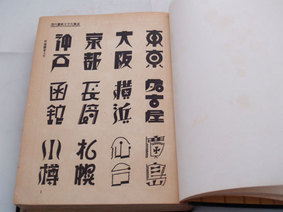 東京
大阪
京都
神戸
名古屋
横浜
長崎
函館
廣島
札幌
小樽